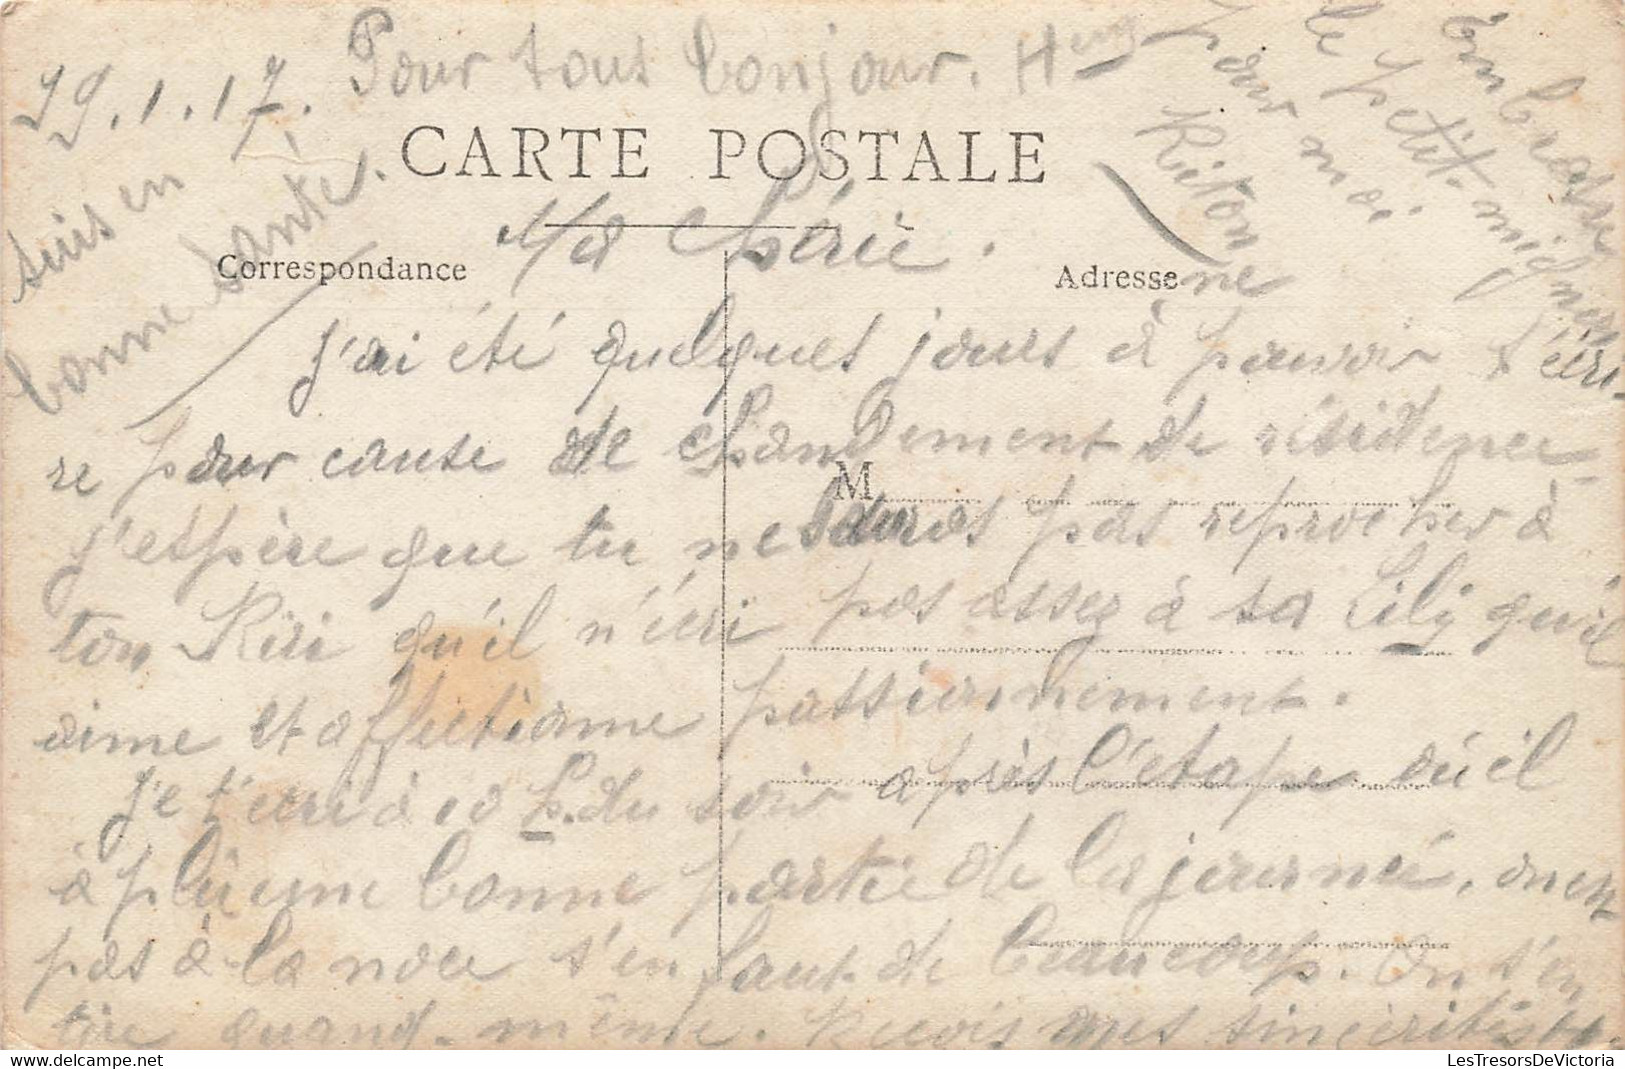 29.1.17. Pour tous bonjour. Hry
Embrasse
le petit mignon
pour moi
Ritonne
suis en
bonne santé.
CARTE POSTALE
Ma chérie.
Correspondance
Adresse
J'ai été quelques jours à pouvoir t'écri-
re pour cause de changement de résidence.
M
J'espère que tu ne sauras pas reprocher à
ton Riri qu'il n'écri pas assez à sa Lily qu'il
aime et affectionne passionnement.
Je t'écri à 10 h. du soir après l'étape où il
à plu une bonne partie de la journée, on est
pas à la noce s'en faut de beaucoup. On s'en
tire quand-même. Reçois mes sincérités et
LesTresorsDeVictoria
www.delcampe.net